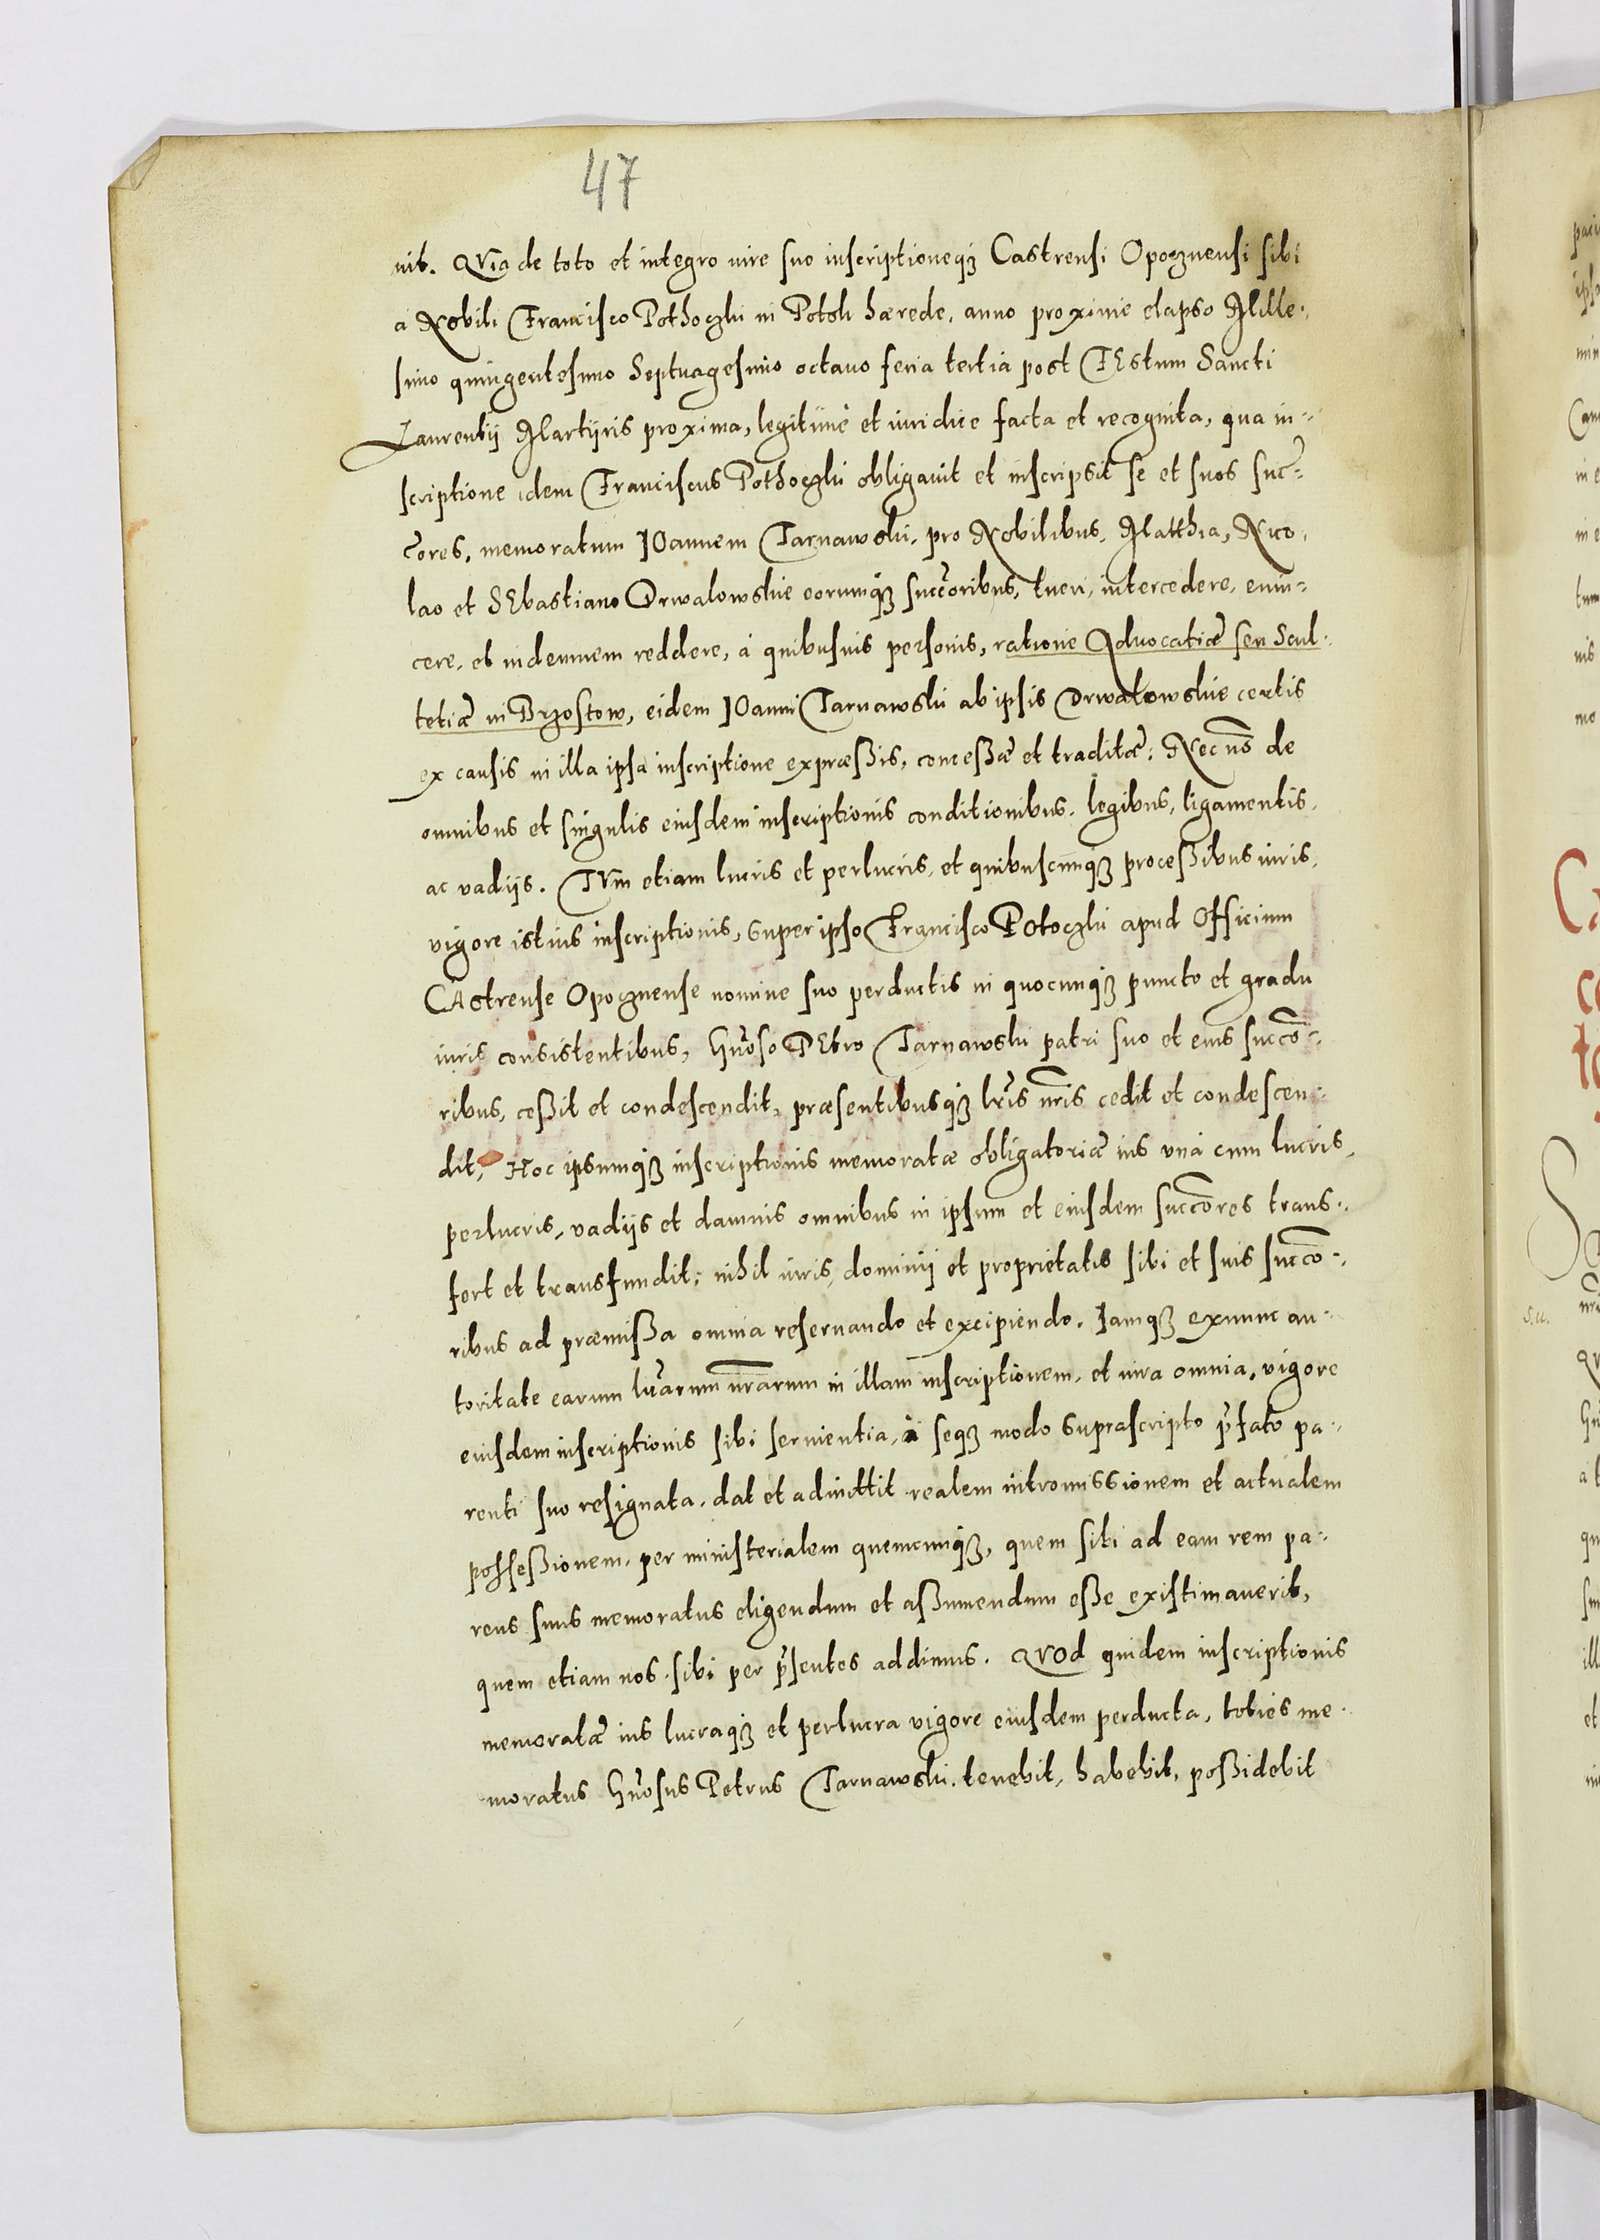 47
nit. QVia de toto et integro iure suo inscriptioneq3 Castrensi Opocznensi sibi
a Nobili Francisco Pothoczki in Potok hærede, anno proxime elapso Mille-
simo quingentesimo Septuagesimo octauo feria tertia post FEstum Sancti
Laurentij Martyris proxima, legitime et iuridice facta et recognita, qua in-
scriptione idem Franciscus Pothoczki obligauit et inscripsit se et suos suc-
cores, memoratum IOannem Tarnawski, pro Nobilibus, Matthia, Nico,
lao et SEbastiano Drwalowskie eorumq3 succoribus, tueri, intercedere, euin-
cere, et indemnem reddere, á quibusuis personis, ratione Aduocatiæ seu Scul-
tetiæ in Brzostow, eidem IOanni Tarnawski ab ipsis Drwalowskie certis
ex causis in illa ipsa inscriptione expræßis, conceßæ et traditæ: Nec nõ de
omnibus et singulis eiusdem inscriptionis conditionibus, legibus, ligamentis,
ac vadijs. TVm etiam lucris et perlucris, et quibuscunq3 proceßibus iuris,
vigore istius inscriptionis, super ipso Francisco POtoczki apud Officium
CAstrense Opocznense nomine suo perductis in quocunq3 puncto et gradu
iuris consistentibus, Gnoso PEtro Tarnawski patri suo et eius succo-
ribus, ceßit et condescendit, præsentibusq3 lris nris cedit et condescen-
dit, Hoc ipsumq3 inscriptionis memoratæ obligatoriæ ius vna cum lucris,
perlucris, vadijs et damnis omnibus in ipsum et eiusdem succores trans-
fert et transfundit; nihil iuris, dominij et proprietatis sibi et suis succo-
ribus ad præmißa omnia reseruando et excipiendo. Iamq3 exnunc au-
toritate earum lrarum nrarum in illam inscriptionem, et iura omnia, vigore
eiusdem inscriptionis sibi seruientia, á seq3 modo suprascripto pfato pa-
renti suo resignata, dat et admittit realem intromissionem et actualem
possessionem, per ministerialem quemcunq3, quem sibi ad eam rem pa-
rens suus memoratus eligendum et aßumendum eße existimauerit,
quem etiam nos sibi per psentes addimus. QVOd quidem inscriptionis
memoratæ ius lucraq3 et perlucra vigore eiusdem perducta, toties me-
moratus Gnosus Petrus Tarnawski tenebit, habebit, poßidebit